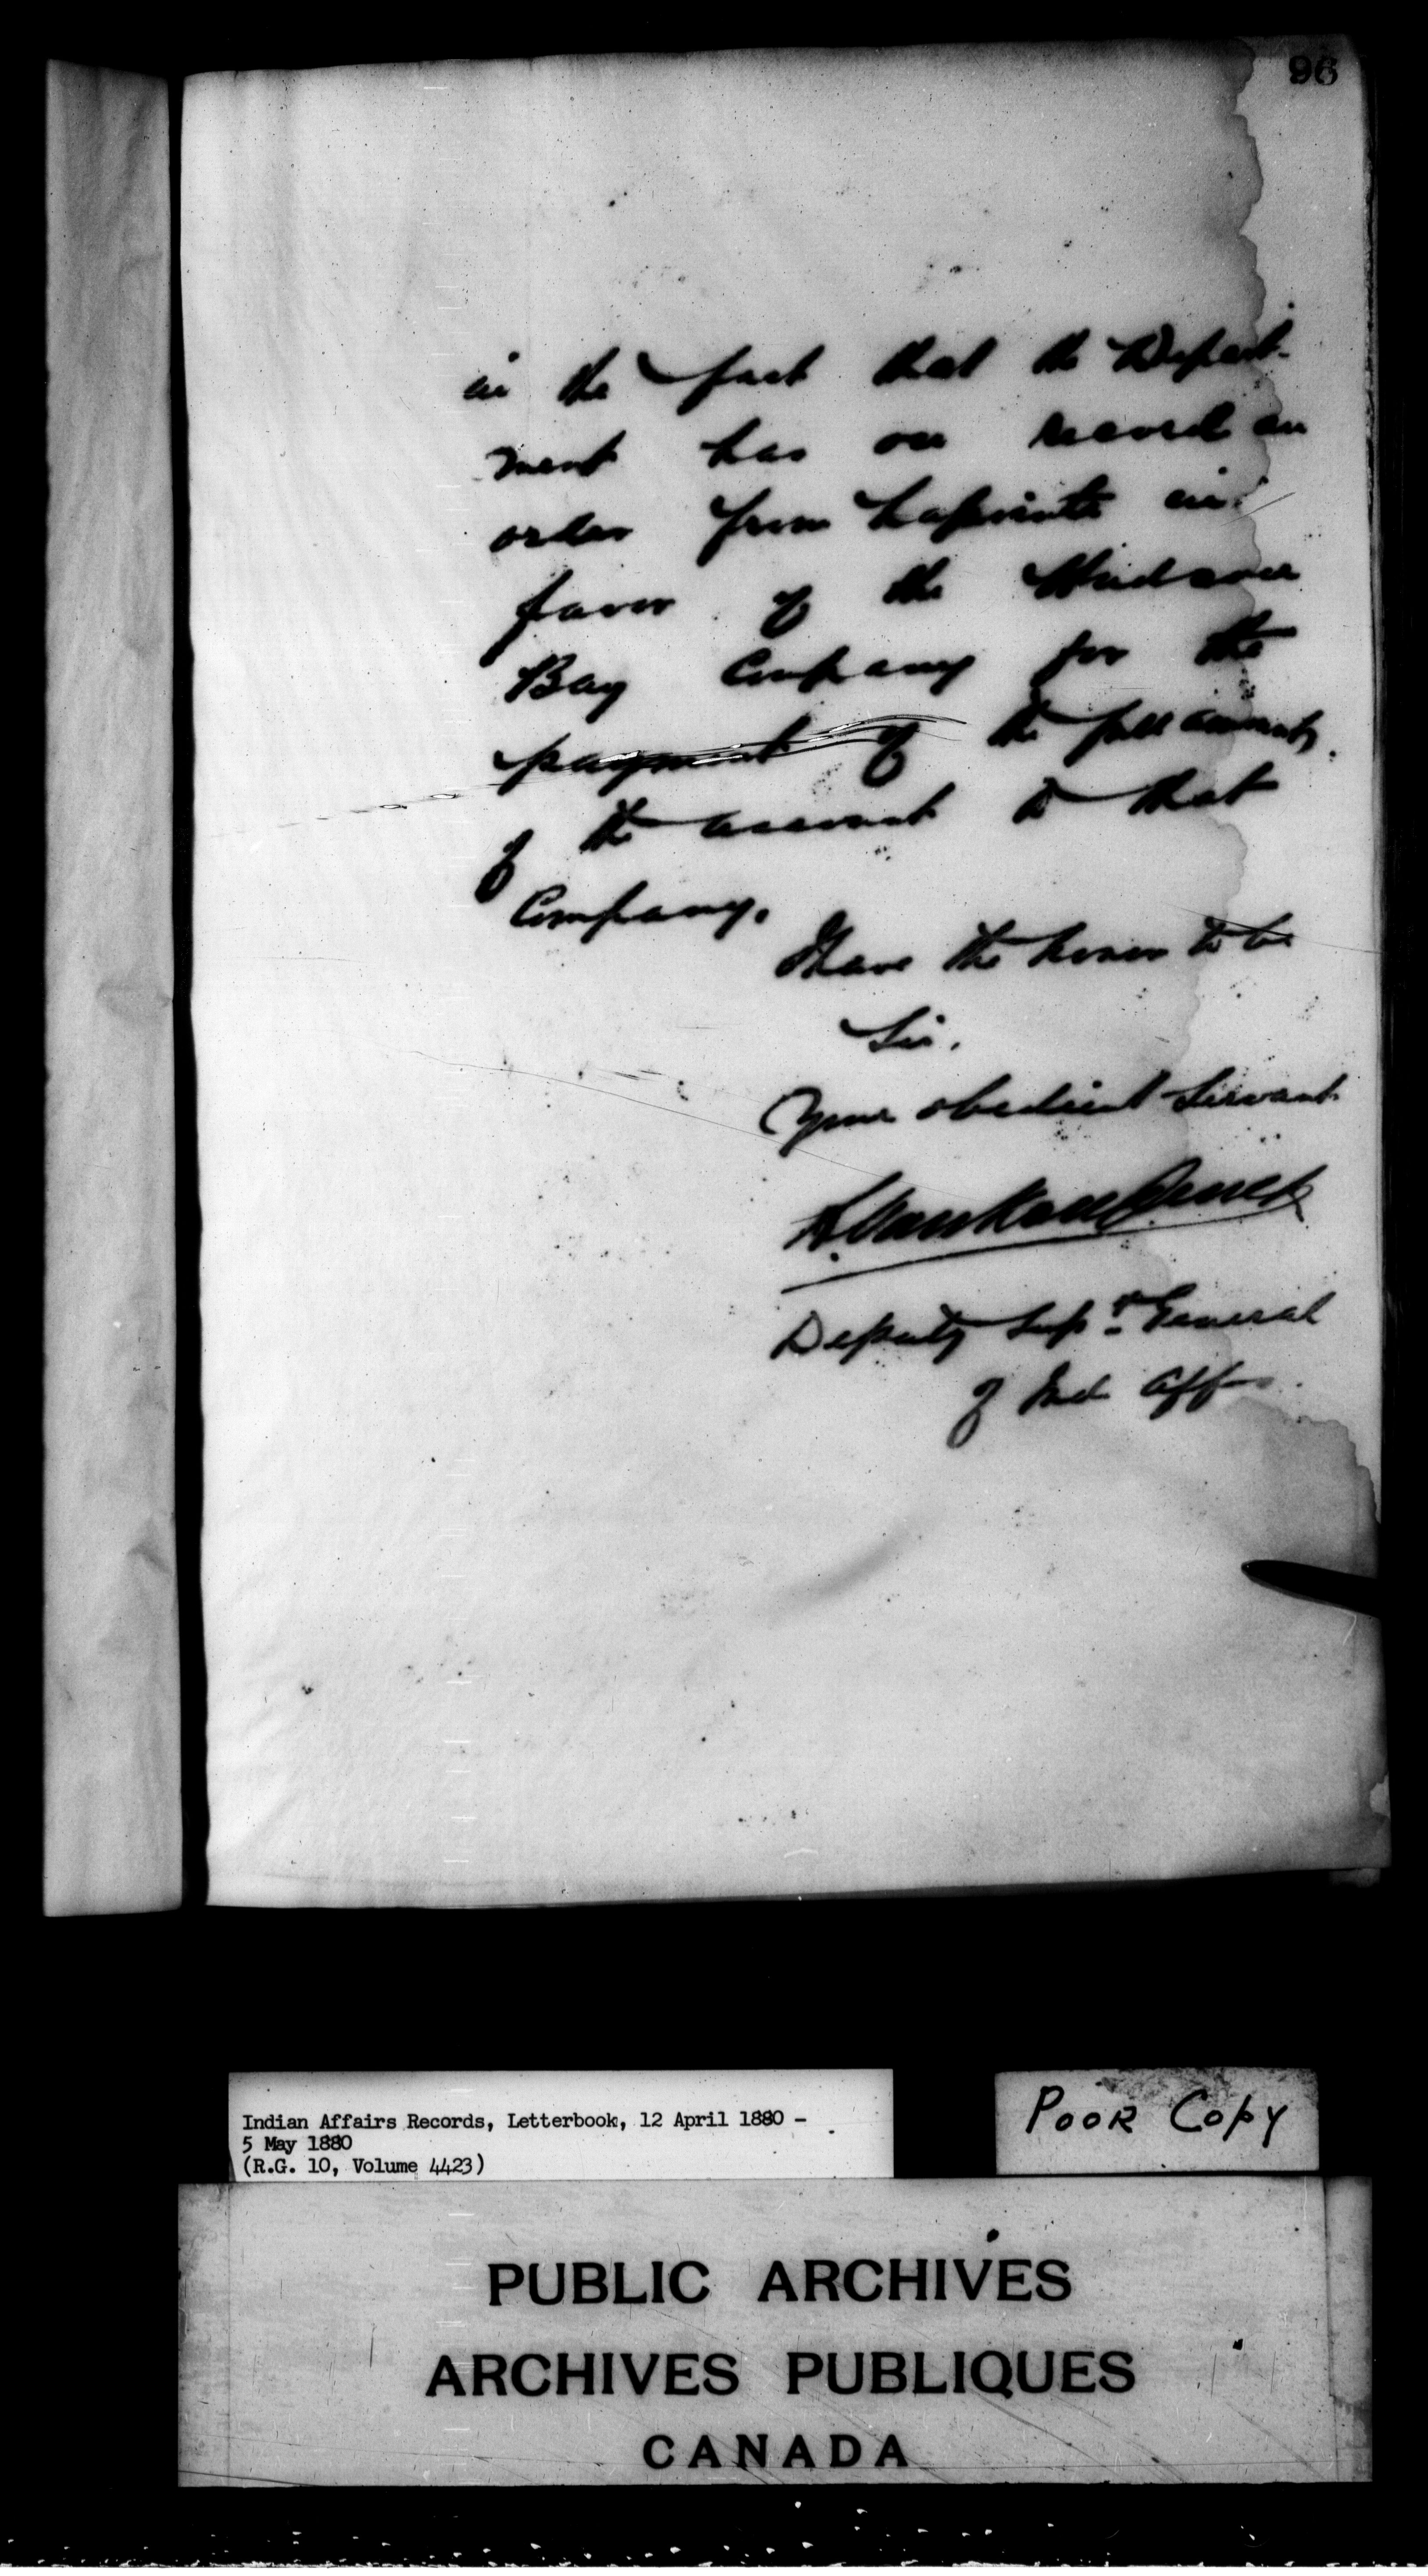 96
in the fact that the Depart-
ment has on record an
order from Lapointe in
favor of the Hudson
Bay Company for the
payment of the full amount
of the account to that
Company.
I have the honor to be
Sir,
Your obedient Servant
L. Vankoughnet
Deputy Supr. General
of Ind. Affs.
Indian Affairs Records, Letterbook, 12 April 1880 -
5 May 1880
(R.G. 10, Volume 4423)
POOR COPY
PUBLIC ARCHIVES
ARCHIVES PUBLIQUES
CANADA